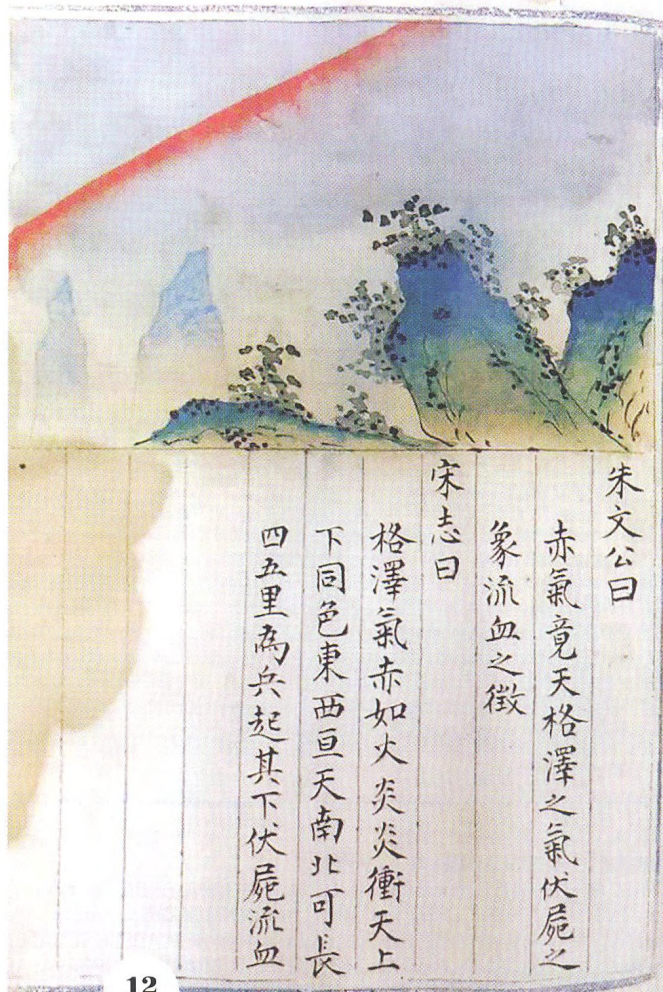 朱文公曰
赤氣竟天格澤之氣伏屍之
象流血之徵
宋志曰
格澤氣赤如火炎炎衝天上
下同色東西亘天南北可長
四五里為兵起其下伏屍流血
12